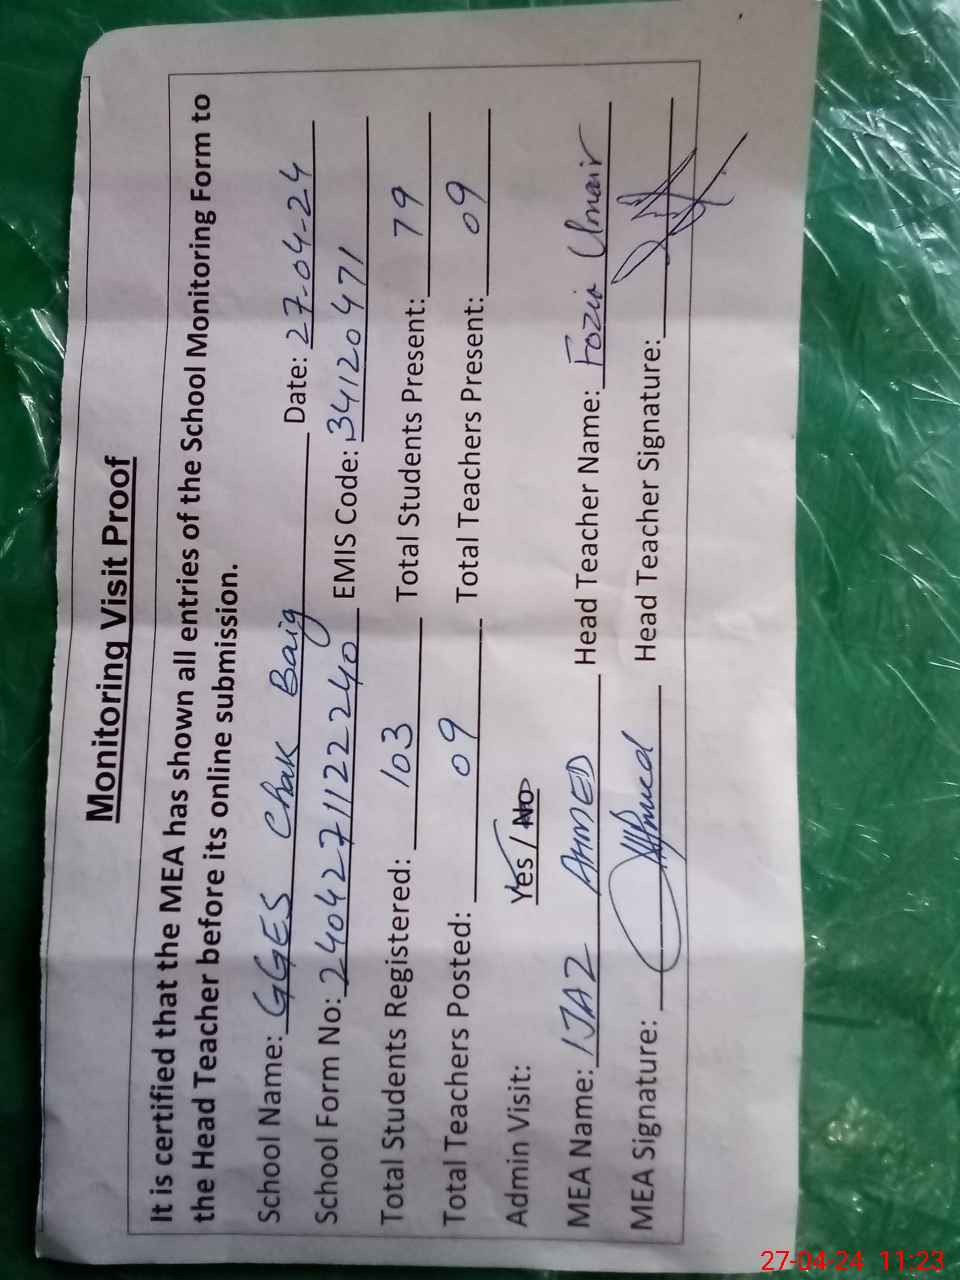 Monitoring Visit Proof
It is certified that the MEA has shown all entries of the School Monitoring Form to
the Head Teacher before its online submission.
School Name: GGES Chak Baig Date: 27-04-24
School Form No: 240427112240 EMIS Code: 34120471
Total Students Registered: 103 Total Students Present: 79
Total Teachers Posted: 09 Total Teachers Present: 09
Admin Visit: Yes / No
MEA Name: IJAZ AHMED Head Teacher Name: Fozia Umair
MEA Signature: Head Teacher Signature:
27-04-24 11:23